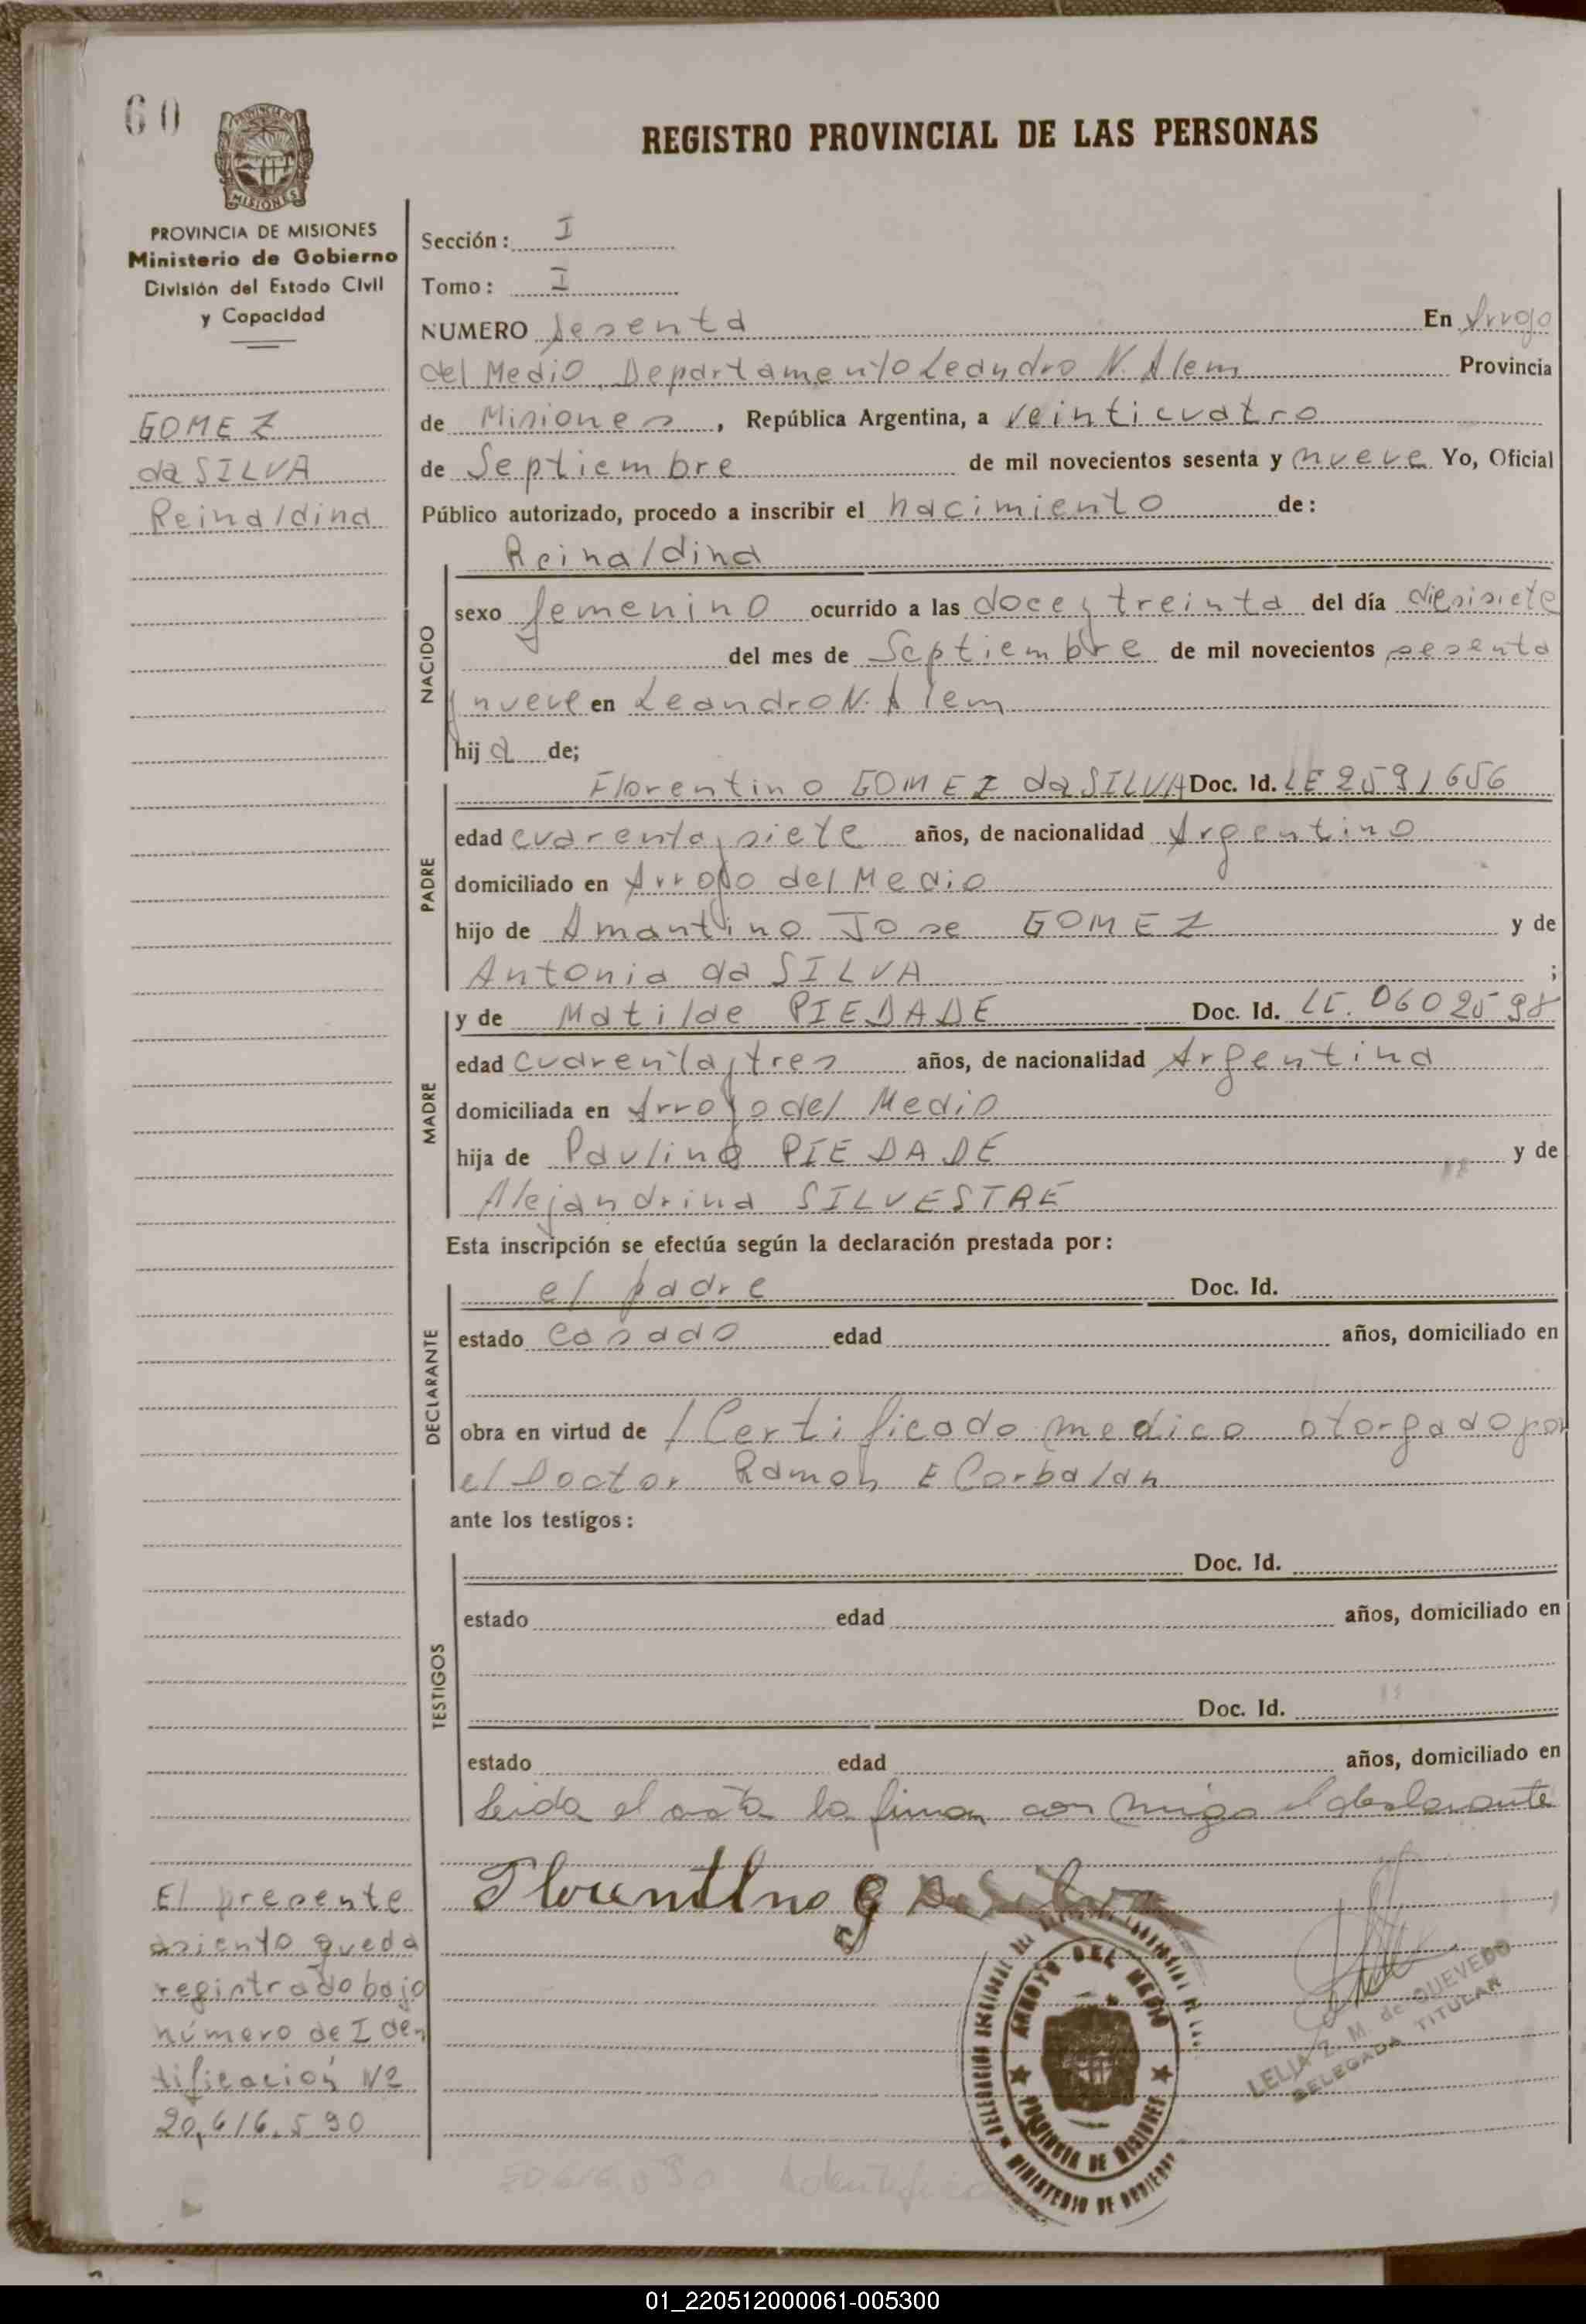 60
PROVINCIA DE
MISIONES
REGISTRO PROVINCIAL DE LAS PERSONAS
PROVINCIA DE MISIONES
Ministerio de Gobierno
División del Estado Civil
y Capacidad
GOMEZ
da SILVA
Reinaldina
Sección: I
Tomo: I
NUMERO Sesenta En Arroyo
del Medio, Departamento Leandro N. Alem Provincia
de Misiones, República Argentina, a veinticuatro
de Septiembre de mil novecientos sesenta y nueve Yo, Oficial
Público autorizado, procedo a inscribir el nacimiento de:
Reinaldina
NACIDO
sexo femenino ocurrido a las doce y treinta del día diesisiete
del mes de Septiembre de mil novecientos sesenta
y nueve en Leandro N. Alem
hija de;
PADRE
Florentino GOMEZ da SILVA Doc. Id. LE 2591656
edad cuarenta y siete años, de nacionalidad Argentino
domiciliado en Arroyo del Medio
hijo de Amantino Jose GOMEZ y de
Antonia da SILVA ;
MADRE
y de Matilde PIEDADE Doc. Id. LC. 0602598
edad cuarenta y tres años, de nacionalidad Argentina
domiciliada en Arroyo del Medio
hija de Paulino PIEDADE y de
Alejandrina SILVESTRE
Esta inscripción se efectúa según la declaración prestada por:
DECLARANTE
el padre Doc. Id.
estado Casado edad años, domiciliado en
obra en virtud de / Certificado medico otorgado por
el Doctor Ramon E Corbalan
ante los testigos:
TESTIGOS
Doc. Id.
estado edad años, domiciliado en
Doc. Id.
estado edad años, domiciliado en
Leida el acta la firma con migo el declarante
Florentino G Da Silva
El presente
asiento queda
registrado bajo
número de Iden
tificación Nº
20,616.590
ARROYO DEL MEDIO
PROVINCIA DE MISIONES
MINISTERIO DE GOBIERNO
LELIA Z. M. de QUEVEDO
DELEGADA TITULAR
01_220512000061-005300